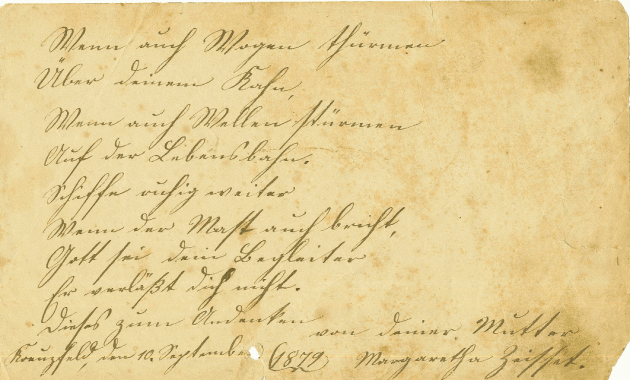 Wenn auch Wogen thürmen
Über deinem Kahn,
Wenn auch Wellen stürmen
Auf der Lebensbahn.
Schiffe ruhig weiter
Wenn der Mast auch bricht,
Gott sei dein Begleiter
Er verläßt dich nicht.
Dieses zum Andenken von deiner Mutter
Kreuzfeld den 10. September (1879) Margaretha Zeisset.